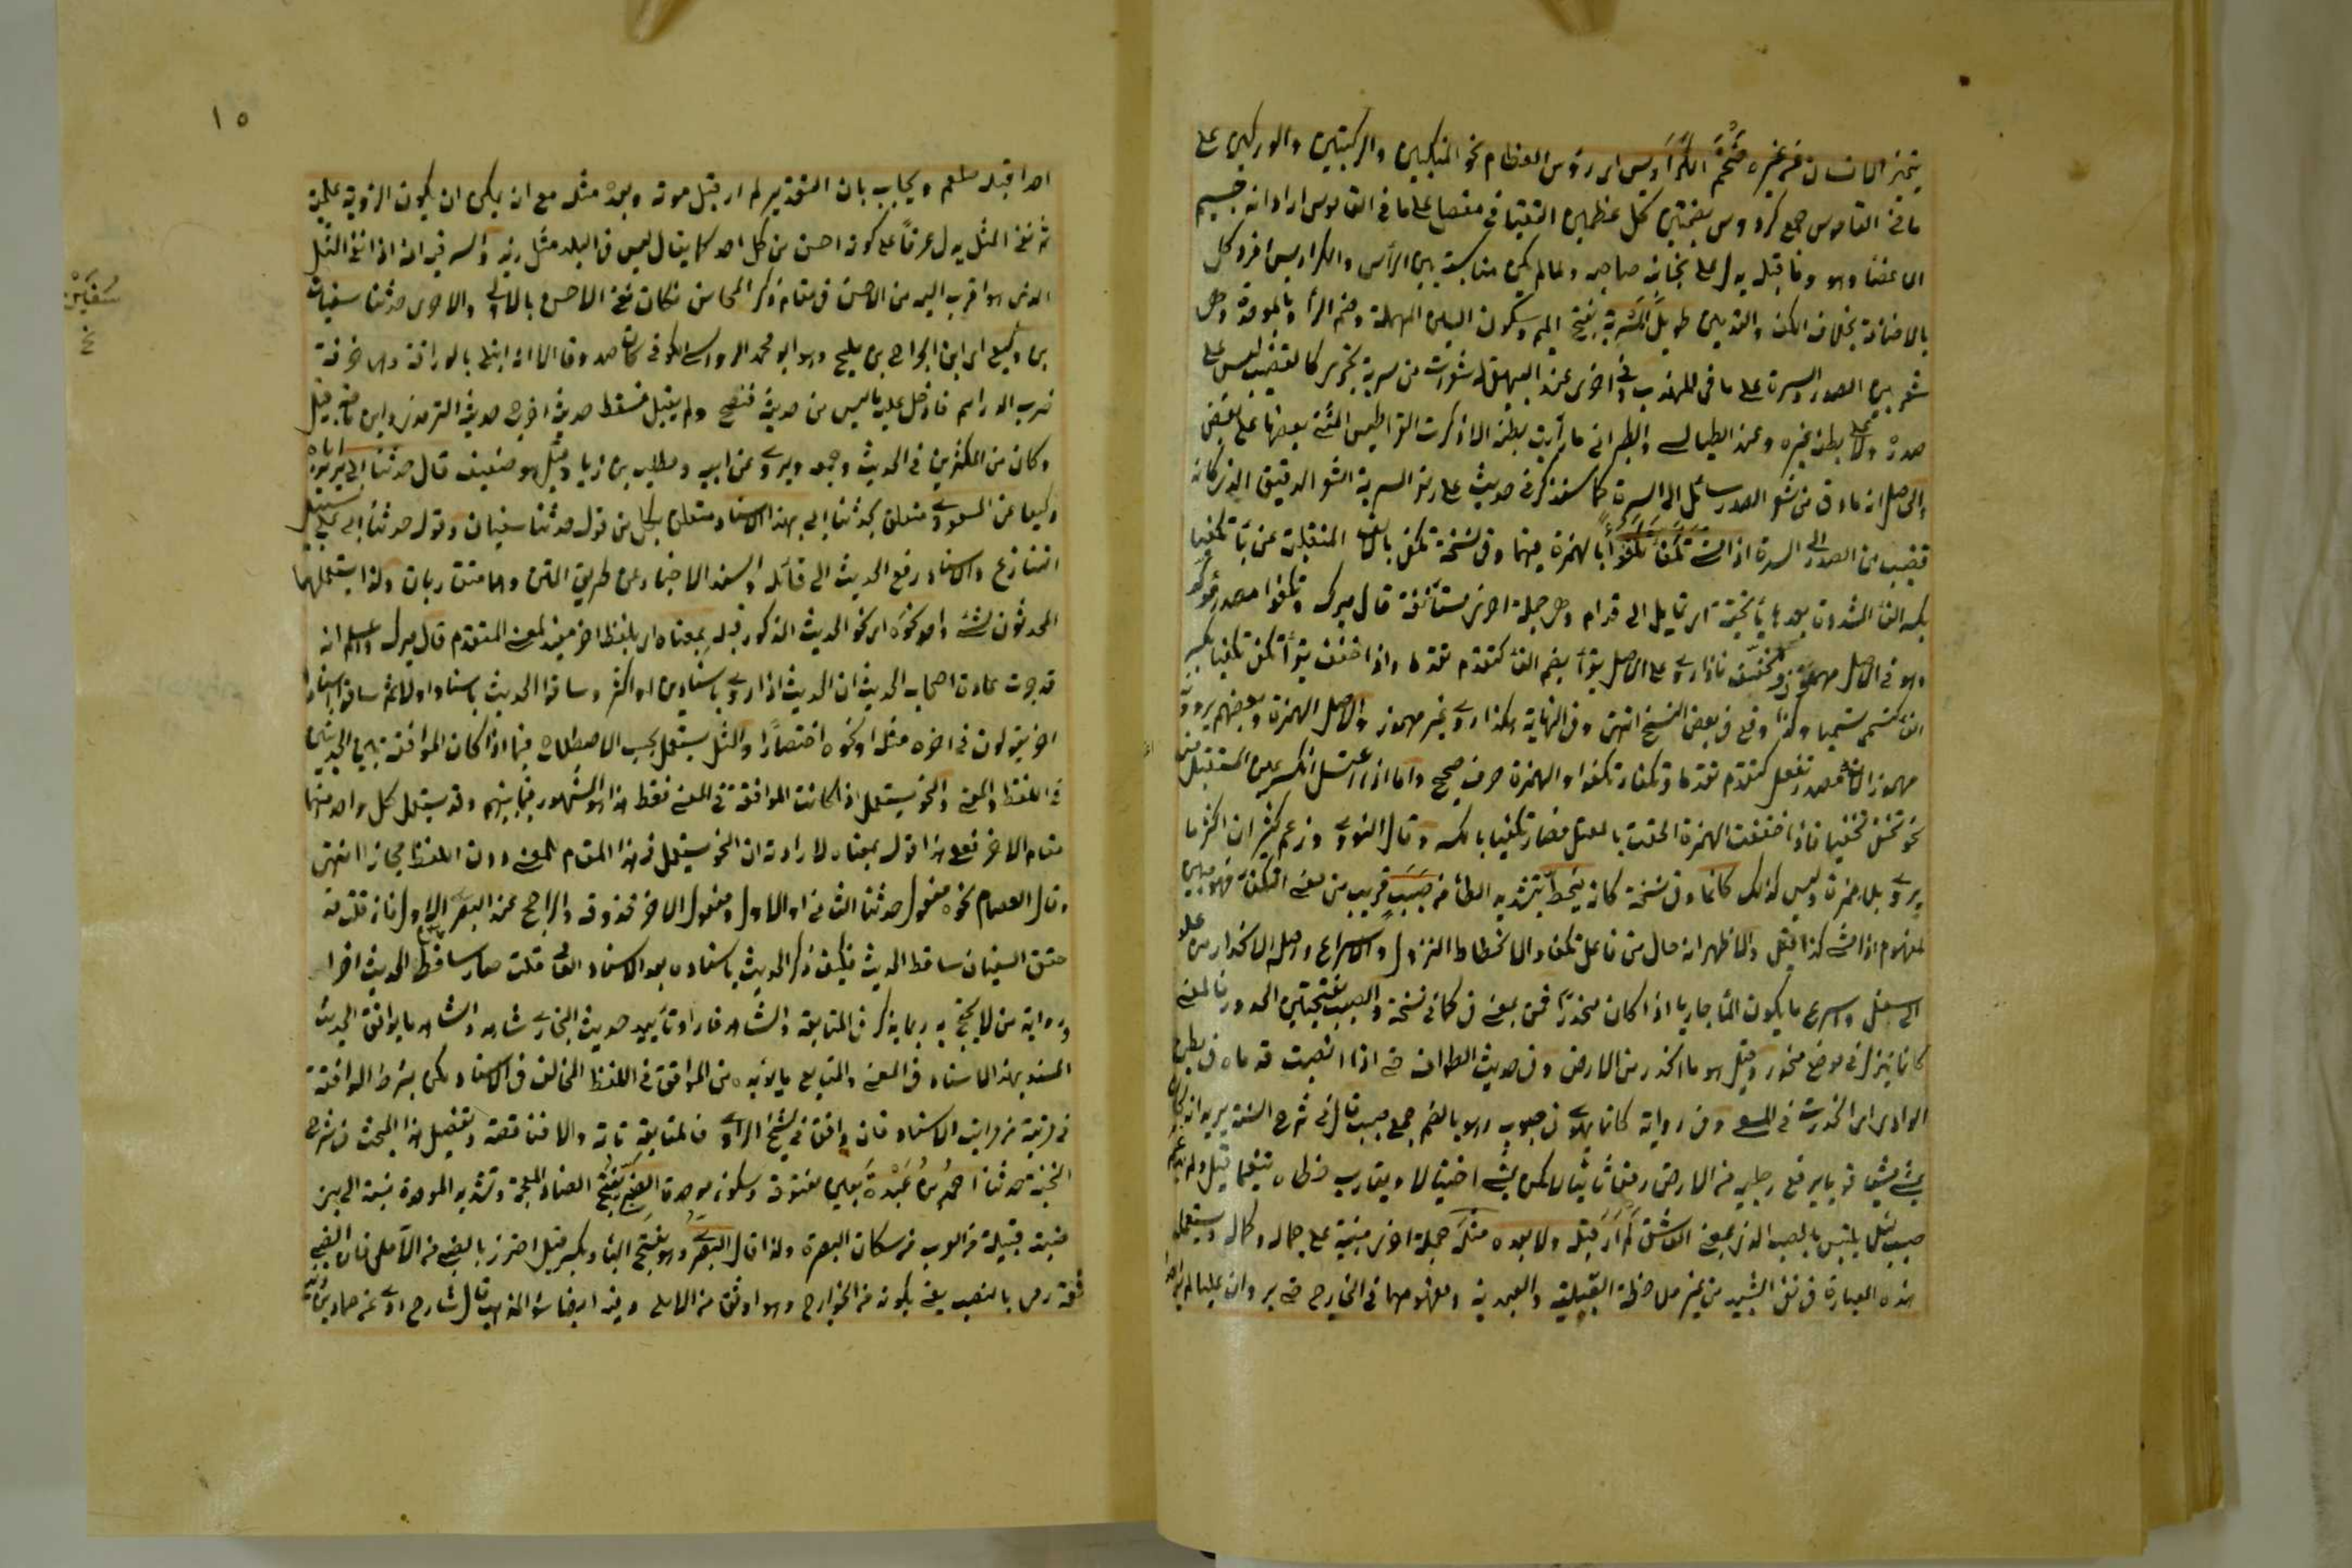 يتميز الانسان عن غيره ضخم الكراديس اى رؤس العظام نحو المنكبين والركبتين والوركين على
ما فى القاموس جمع كردوس بضمتين كل عظمين التقيا فى مفصل على ما فى القاموس اراد انه جسيم
الاعضاء وهو وما قبله يدل على نجابة صاحبه ولما لم يكن مناسبة بين الرأس والكراديس افرد كل
بالاضافة بخلاف الكف والقدمين طويل المسربة بفتح الميم وسكون السين المهملة وضم الراء وبالموحدة وهى
شعر بين الصدر والسرة على ما فى المهذب وفى اخرى عند البيهقى له شعرات من سربة تجرى كالقضيب ليس على
صدره ولا على بطنه غيره وعند الطيالسى والطبرانى ما رأيت بطنه الا ذكرت القراطيس المثنى بعضها على بعض
الى السرة كما سنذكر فى حديث على رضه المسربة الشعر الدقيق الذى كانه
قضيب من الصدر الى السرة اذا مشى تكفأ تكفؤا بالهمزة فيهما وفى نسخة تكفى بالالف المنقلبة عن ياء تكفيا
بكسر الفاء المشددة بعدها ياء تحتية اى تمايل الى قدام وهى جملة اخرى مستأنفة قال ميرك وتكفوا مصدر مؤكد
وهو فى الاصل مهموز فاذا روى على الاصل يقرأ بضم الفاء كتقدم تقدما واذا خفف يقرأ تكفى تكفيا بكسر
الفاء كتسمى تسميا وكذا وقع فى بعض النسخ انتهى وفى النهاية هكذا روى غير مهموز والاصل الهمزة وبعضهم يرويه
مهموز الان مصدر تفعل كتقدم تقدما وتكفأ تكفوا والهمزة حرف صحيح واما اذا اعتل انكسر عين المستقبل منه
نحو تخفى تخفيا فاذا خففت الهمزة التحقت بالمعتل فصار تكفيا بالكسر وقال النووى وزعم كثير ان اكثر ما
يروى بلا همزة وليس كذلك كانما وفى نسخة كانه ينحط بتشديد الطاء من صبب قريب من معنى التكفؤ فهو مبين
لمفهوم اذا مشى كذا قيل والاظهر انه حال من فاعل تكفأ والانحطاط النزول والاسراع واصله الانحدار من علو
الى سفل واسرع ما يكون الماء جاريا اذا كان منحدرا فمن بمعنى فى كما فى نسخة والصبب بفتحتين الحدور فالمعنى
كانما ينزل فى موضع منحدر وقيل هو ما انحدر من الارض وفى حديث الطواف حتى اذا انصبت قدماه فى بطن
الوادى اى انحدرت فى المسعى وفى رواية كانما يهوى فى صبوب وهو بالضم جمع صبب قال فى شرح السنة يريد انه كان
يمشى مشيا قويا يرفع رجليه من الارض رفعا ثابتا لا كمن يمشى اختيالا ويقارب خطاه تنعما
صبب لم ار قبله ولا بعده مثله جملة اخرى مبنية على جماله وكماله ويستعمل
هذه العبارة فى نفى الشبيه من غير ملاحظة القبلية والبعدية ومفهومهما فى الخارج حتى يرد ان عليا لم ير
١٥
احدا قبله صلعم ويجاب بان التقدير لم ار قبل موته وبعده مثله مع انه يمكن ان يكون الرؤية علمية
ثم نفى المثل يدل عرفا على كونه احسن من كل احد كما يقال ليس فى البلد مثل زيد والسر فيه انه اذا انتفى المثل
الذى هو اقرب اليه من الاحسن فى مقام ذكر المحاسن فكان نفى الاحسن بالاولى والاحرى حدثنا سفيان
سفين
بن وكيع اى ابن الجراح بن مليح وهو ابو محمد الرواسى الكوفى كان صدوقا الا انه ابتلى بالوراقة وهى حرفة
ضرب الدراهم فادخل عليه ما ليس من حديثه فنصح ولم يقبل فسقط حديثه اخرج حديثه الترمذى وابن ماجه قيل
وكان من المكثرين فى الحديث وجمعه ويروى عن ابيه ومطلب بن زياد وقيل هو ضعيف قال حدثنا ابى يريد اباه
وكيعا عن المسعودى متعلق بحدثنا ابى بهذا الاسناد متعلق بكل من قوله حدثنا سفيان وقوله حدثنا ابى على سبيل
التنازع والاسناد رفع الحديث الى قائله والسند الاخبار عن طريق المتن وهما متقاربان ولذا يستعملهما
المحدثون لشىء واحد نحوه اى نحو الحديث المذكور قبله بمعناه اى بلفظ اخر مفيد لمعنى المتقدم قال ميرك واعلم انه
قد جرت عادة اصحاب الحديث ان الحديث اذا روى باسنادين او اكثر وساقوا الحديث باسناد اولا ثم ساقوا اسنادا
اخر يقولون فى اخره مثله او نحوه اختصارا والمثل يستعمل بحسب الاصطلاح فيما اذا كان الموافقة بين الحديثين
فى اللفظ والمعنى والنحو يستعمل اذا كانت الموافقة فى المعنى فقط هذا هو المشهور فيما بينهم وقد يستعمل كل واحد منهما
مقام الاخر فعلى هذا قوله بمعناه لارادة ان النحو يستعمل فى هذا المقام للمعنى دون اللفظ مجازا انتهى
وقال العصام نحوه مفعول حدثنا الثانى او الاول ومفعول الاخر محذوف والراجح عند البصرى الاول فان قلت قد
حقق السفيان ساقط الحديث فكيف ذكر الحديث باسناده بعد الاسناد العالى قلت صار ساقط الحديث اخرا
ورواية من لا يحتج به ربما يذكر فى المتابعة والشاهد فاراد تأييد حديث البخارى شاهد والشاهد ما يوافق الحديث
المسند بهذا الاسناد فى المعنى والمتابع ما يؤيده من الموافق فى اللفظ المخالف فى الاسناد ولكن بشرط الموافقة
فى مرتبة من مراتب الاسناد فان وافق فى شيخ الراوى فالمتابعة تامة والا فناقصة وتفصيل هذا المبحث فى شرح
النخبة حدثنا احمد بن عبدة بعين مفتوحة وسكون موحدة الضبى بفتح الضاد المعجمة وتشديد الموحدة نسبة الى بنى
ضبة قبيلة من العرب من سكان البصرة ولذا قال البصرى وهو بفتح الباء وبكسر قيل احترز بالضبى من الآملى فان الضبى
ثقة رمى بالنصب يعنى بكونه من الخوارج وهو اوثق من الاملى وفيه ايضا سوء المذهب قال شارح روى عنه حماد بن زيد